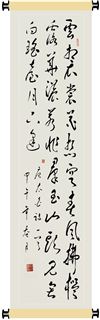 雲想衣裳花想容春風拂檻
露華濃若非群玉山頭見會
向瑤臺月下逢
甲午年